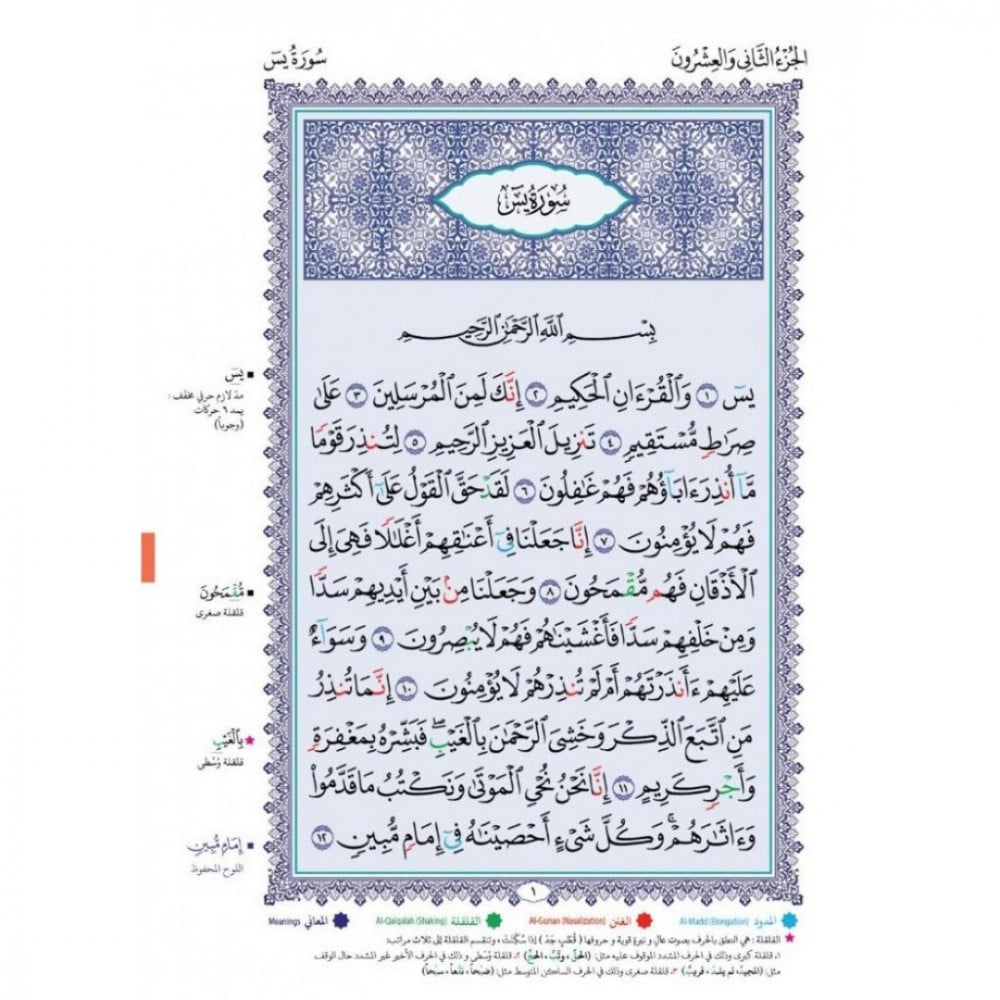 الجُزْءُ الثَّانِي وَالعِشْرُونَ
سُورَةُ يسٓ
سُورَةُ يسٓ
بِسْمِ ٱللَّهِ ٱلرَّحْمَٰنِ ٱلرَّحِيمِ
يسٓ ۝١ وَٱلْقُرْءَانِ ٱلْحَكِيمِ ۝٢ إِنَّكَ لَمِنَ ٱلْمُرْسَلِينَ ۝٣ عَلَىٰ
صِرَٰطٍ مُّسْتَقِيمٍ ۝٤ تَنزِيلَ ٱلْعَزِيزِ ٱلرَّحِيمِ ۝٥ لِتُنذِرَ قَوْمًا
مَّآ أُنذِرَ ءَابَآؤُهُمْ فَهُمْ غَٰفِلُونَ ۝٦ لَقَدْ حَقَّ ٱلْقَوْلُ عَلَىٰٓ أَكْثَرِهِمْ
فَهُمْ لَا يُؤْمِنُونَ ۝٧ إِنَّا جَعَلْنَا فِىٓ أَعْنَٰقِهِمْ أَغْلَٰلًا فَهِىَ إِلَى
ٱلْأَذْقَانِ فَهُم مُّقْمَحُونَ ۝٨ وَجَعَلْنَا مِنۢ بَيْنِ أَيْدِيهِمْ سَدًّا
وَمِنْ خَلْفِهِمْ سَدًّا فَأَغْشَيْنَٰهُمْ فَهُمْ لَا يُبْصِرُونَ ۝٩ وَسَوَآءٌ
عَلَيْهِمْ ءَأَنذَرْتَهُمْ أَمْ لَمْ تُنذِرْهُمْ لَا يُؤْمِنُونَ ۝١٠ إِنَّمَا تُنذِرُ
مَنِ ٱتَّبَعَ ٱلذِّكْرَ وَخَشِىَ ٱلرَّحْمَٰنَ بِٱلْغَيْبِ ۖ فَبَشِّرْهُ بِمَغْفِرَةٍ
وَأَجْرٍ كَرِيمٍ ۝١١ إِنَّا نَحْنُ نُحْىِ ٱلْمَوْتَىٰ وَنَكْتُبُ مَا قَدَّمُوا۟
وَءَاثَٰرَهُمْ ۚ وَكُلَّ شَىْءٍ أَحْصَيْنَٰهُ فِىٓ إِمَامٍ مُّبِينٍ ۝١٢
يسٓ
مدّ لازم حرفي مخفّف :
يمد ٦ حركات
(وجوباً)
مُّقْمَحُونَ
قلقلة صغرى
بِٱلْغَيْبِ
قلقلة وُسْطى
إِمَامٍ مُّبِينٍ
اللوح المحفوظ
١
المدود Al-Madd (Elongation) الغنن Al-Gunan (Nasalization) القلقلة Al-Qalqalah (Shaking) المعاني Meanings
القلقلة : هي النطق بالحرف بصوت عالٍ و نبرة قوية و حروفها ( قُطْبُ جَدٍّ ) إذا سُكِّنَتْ ، وتنقسم القلقلة إلى ثلاث مراتب:
١. قلقلة كبرى وذلك في الحرف المشدد الموقوف عليه مثل: (الحقّ ، وتبّ ، الحجّ) ٢. قلقلة وُسْطى و ذلك في الحرف الأخير غير المشدد حال الوقف
مثل: (المجيدْ، لم يلدْ ، قريبْ) ٣. قلقلة صغرى وذلك في الحرف الساكن المتوسط مثل: (صَبْحاً ، نقْعاً ، سبْحاً)